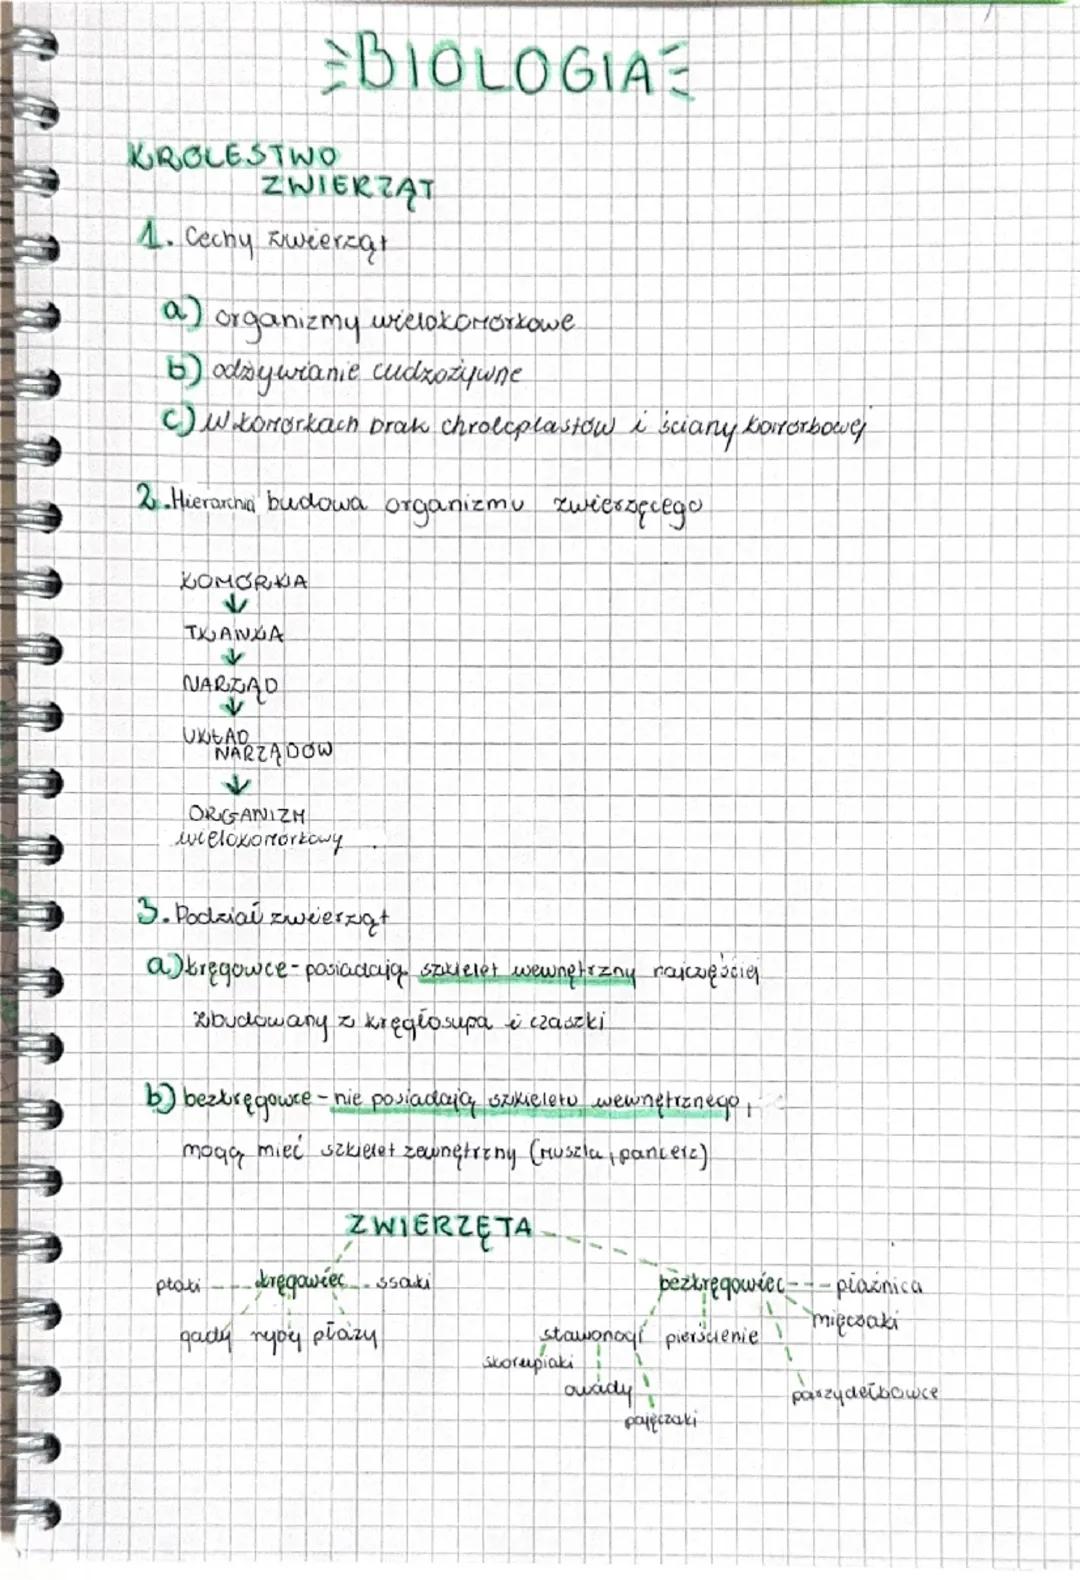 BIOLOGIA
KRÓLESTWO
ZWIERZĄT
1. Cechy zwierząt
a) organizmy wielokomórkowe
b) odżywianie cudzożywne
c) W komórkach brak chroloplastów i ściany komórkowej
2. Hierarchia budowa organizmu zwierzęcego
KOMÓRKA
↓
TKANKA
↓
NARZĄD
↓
UKŁAD
NARZĄDÓW
↓
ORGANIZM
wielokomórkowy
3. Podział zwierząt
a) kręgowce - posiadają szkielet wewnętrzny najczęściej
zbudowany z kręgłosupa i czaszki
b) bezkręgowce - nie posiadają szkieletu wewnętrznego,
mogą mieć szkielet zewnętrzny (muszla, pancerz)
ZWIERZĘTA
ptaki kręgowiec ssaki bezkręgowiec płaźnica
gady ryby płazy stawonogi pierścienie mięczaki
skorupiaki
owady parzydełkowce
pajęczaki